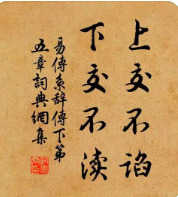 上交不谄
下交不渎
易傳系辞傳下第
五章詞典網集